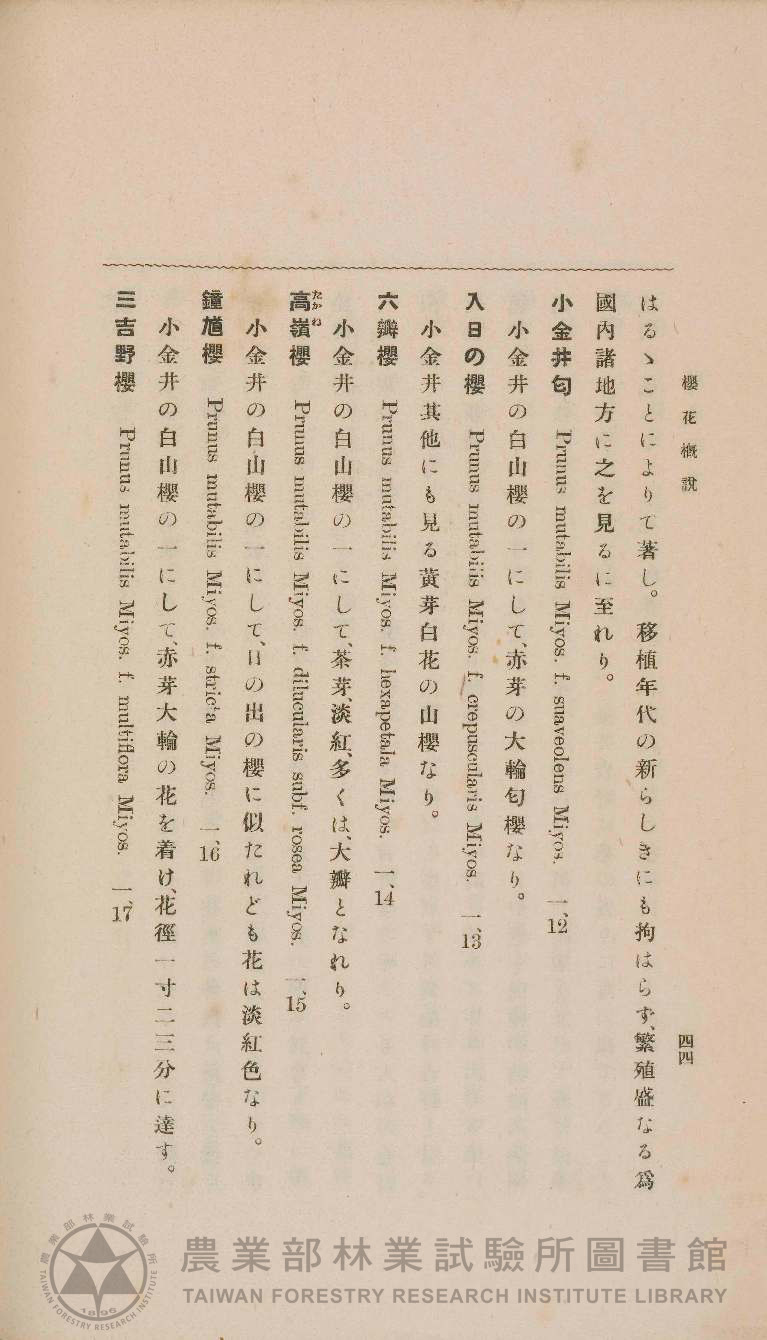 櫻花概說
四四
はるゝことによりて著し。移植年代の新らしきにも拘はらず、繁殖盛なる爲
國內諸地方に之を見るに至れり。
小金井匂 Prunus mutabilis Miyos. f. suaveolens Miyos. 一、12
小金井の白山櫻の一にして、赤芽の大輪匂櫻なり。
入日の櫻 Prunus mutabilis Miyos. f. crepuscularis Miyos. 一、13
小金井其他にも見る黃芽白花の山櫻なり。
六瓣櫻 Prunus mutabilis Miyos. f. hexapetala Miyos. 一、14
小金井の白山櫻の一にして、茶芽、淡紅、多くは、大瓣となれり。
高嶺櫻 Prunus mutabilis Miyos. f. dilucularis subf. rosea Miyos. 一、15
たかね
小金井の白山櫻の一にして、日の出の櫻に似たれども花は淡紅色なり。
鐘馗櫻 Prunus mutabilis Miyos. f. stricta Miyos. 一、16
小金井の白山櫻の一にして、赤芽大輪の花を着け、花徑一寸二三分に達す。
三吉野櫻 Prunus mutabilis Miyos. f. multiflora Miyos. 一、17
農業部林業試驗所
TAIWAN FORESTRY RESEARCH INSTITUTE
1895
農業部林業試驗所圖書館
TAIWAN FORESTRY RESEARCH INSTITUTE LIBRARY